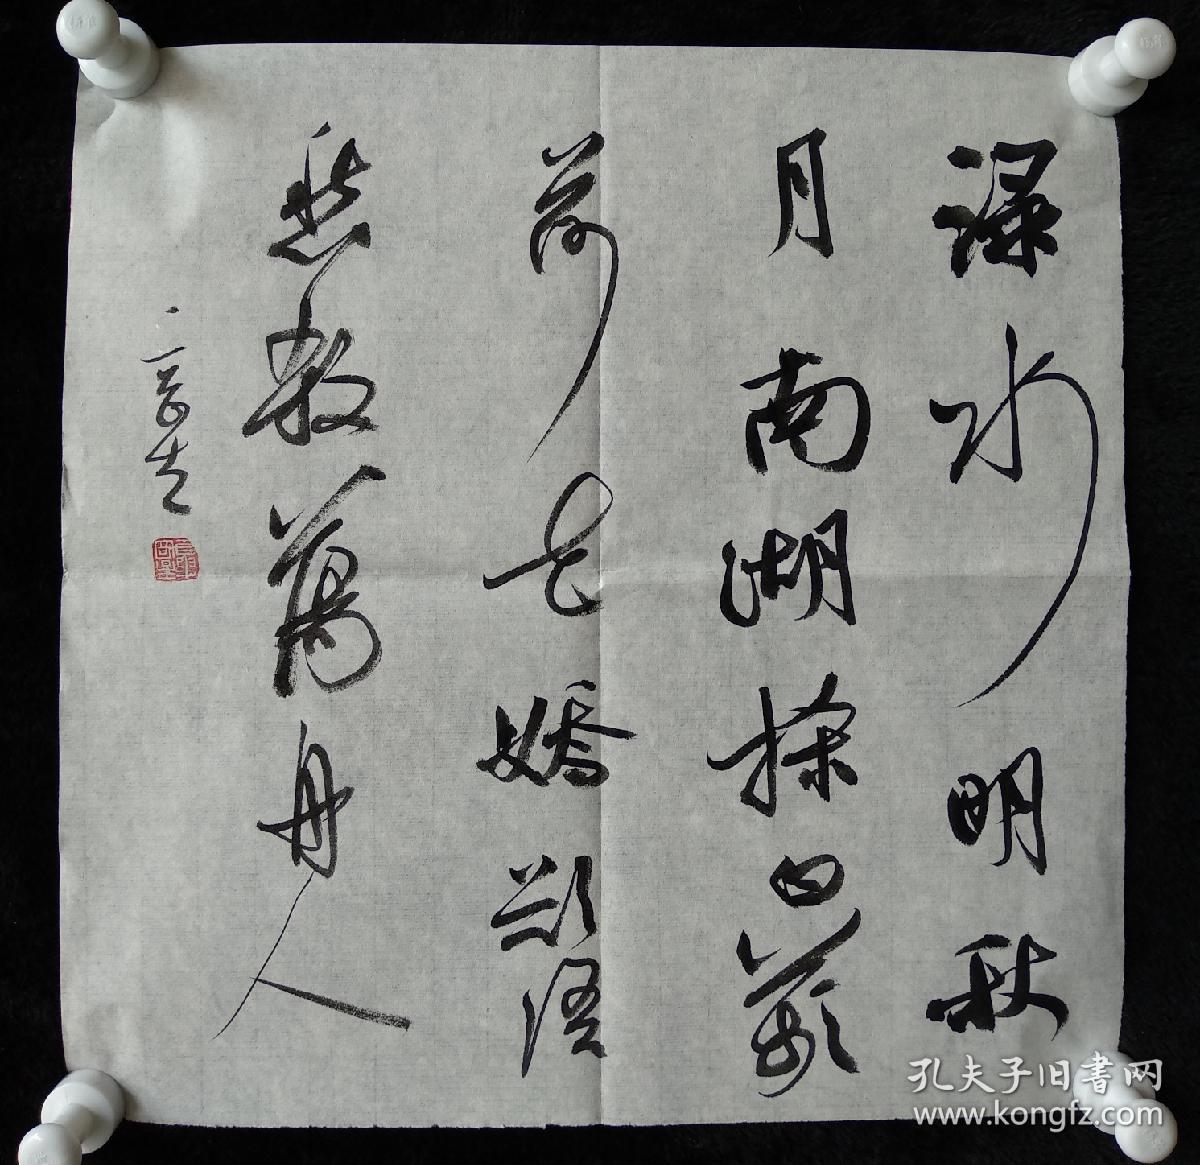 渌水明秋
月南湖採白蘋
荷花嬌欲語
愁殺蕩舟人
孔夫子旧書网
www.kongfz.com